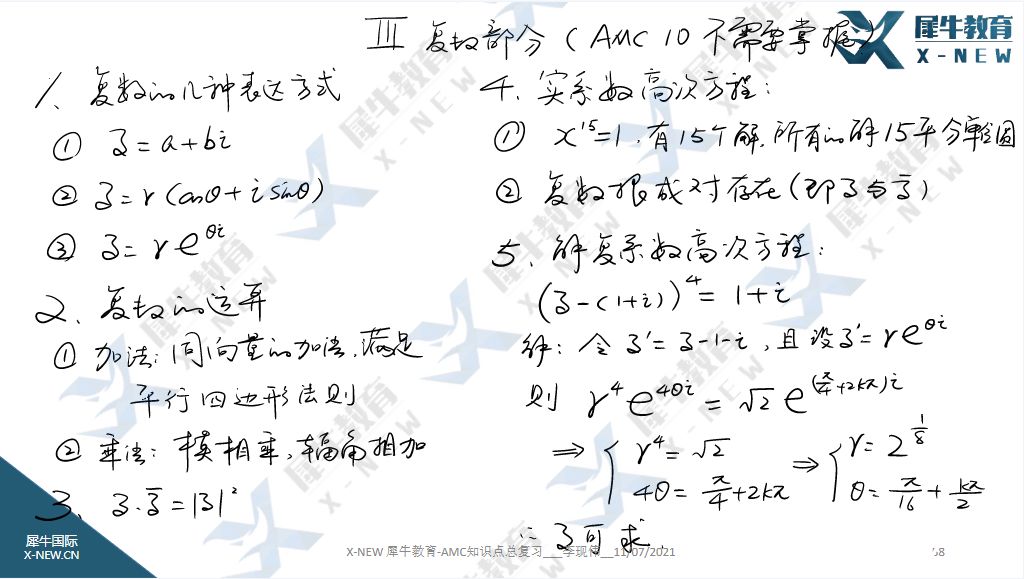 III 复数部分（AMC 10 不需要掌握）
犀牛教育
X-NEW
1、复数的几种表达方式
① z = a + bi
② z = r (cosθ + i sinθ)
③ z = r e^{θi}
2、复数的运算
① 加法：同向量的加法，满足
平行四边形法则
② 乘法：模相乘，辐角相加
3、z·z̄ = |z|²
4、实系数高次方程：
① x^{15} = 1，有15个解，所有的解15平分单位圆
② 复数根成对存在（即z与z̄）
5、解复系数高次方程：
(z - (1+i))^4 = 1 + i
解：令 z' = z - 1 - i，且设 z' = r e^{θi}
则 r^4 e^{4θi} = √2 e^{(π/4 + 2kπ)i}
⇒ { r^4 = √2 ⇒ { r = 2^{1/8}
4θ = π/4 + 2kπ θ = π/16 + kπ/2
∴ z 可求.
犀牛国际
X-NEW.CN
X-NEW 犀牛教育-AMC知识点总复习___李现伟__11/07/2021
58